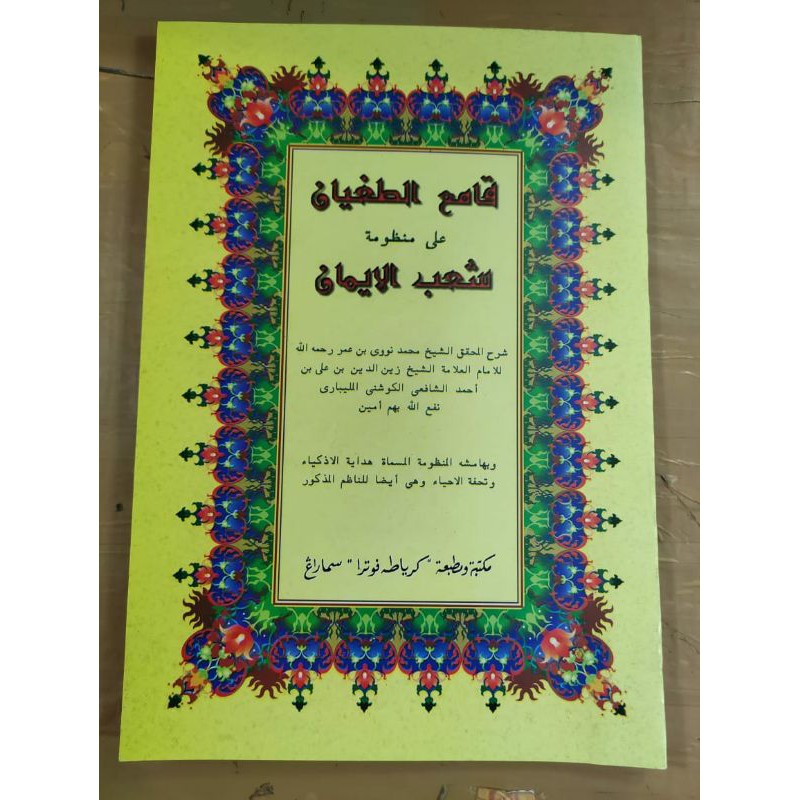 قامع الطغيان
على منظومة
شعب الايمان
شرح المحقق الشيخ محمد نووي بن عمر رحمه الله
للامام العلامة الشيخ زين الدين بن على بن
أحمد الشافعى الكوشنى المليبارى
نفع الله بهم أمين
وبهامشه المنظومة المسماة هداية الاذكياء
وتحفة الاحياء وهي أيضا للناظم المذكور
مكتبة ومطبعة "كرياطه فوترا" سماراڠ